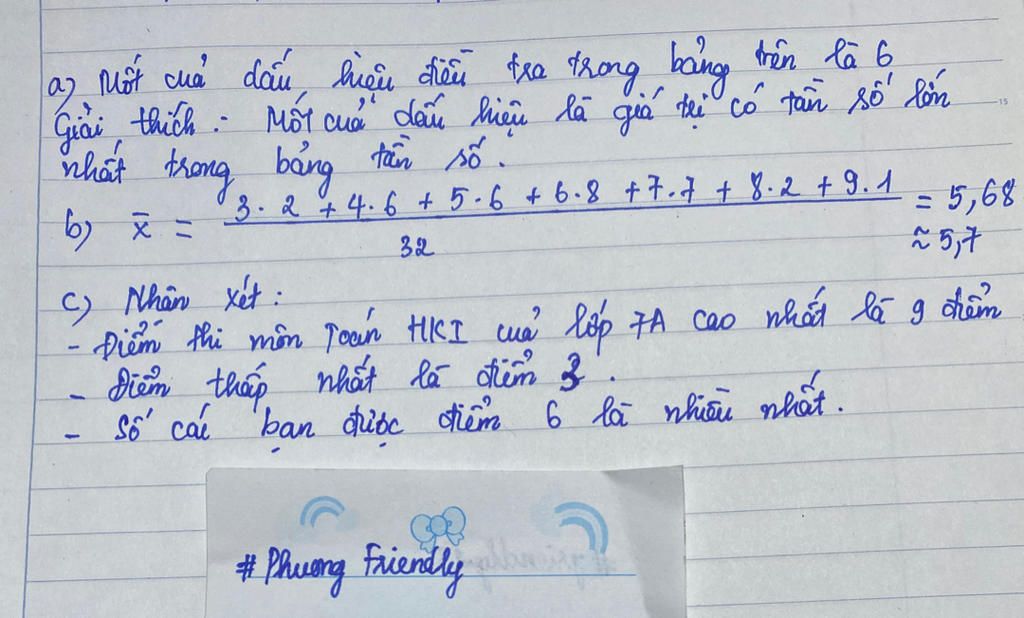 a) Mốt cuả dấu hiệu điều tra trong bảng trên là 6
Giải thích : Mốt cuả dấu hiệu là giá trị có tần số lớn
nhất trong bảng tần số.
b) x̄ = (3.2 + 4.6 + 5.6 + 6.8 + 7.7 + 8.2 + 9.1) / 32 = 5,68
≈ 5,7
c) Nhận xét :
- Điểm thi môn Toán HKI cuả lớp 7A cao nhất là 9 điểm
- Điểm thấp nhất là điểm 3.
- Số các bạn được điểm 6 là nhiều nhất.
# Phương Friendly